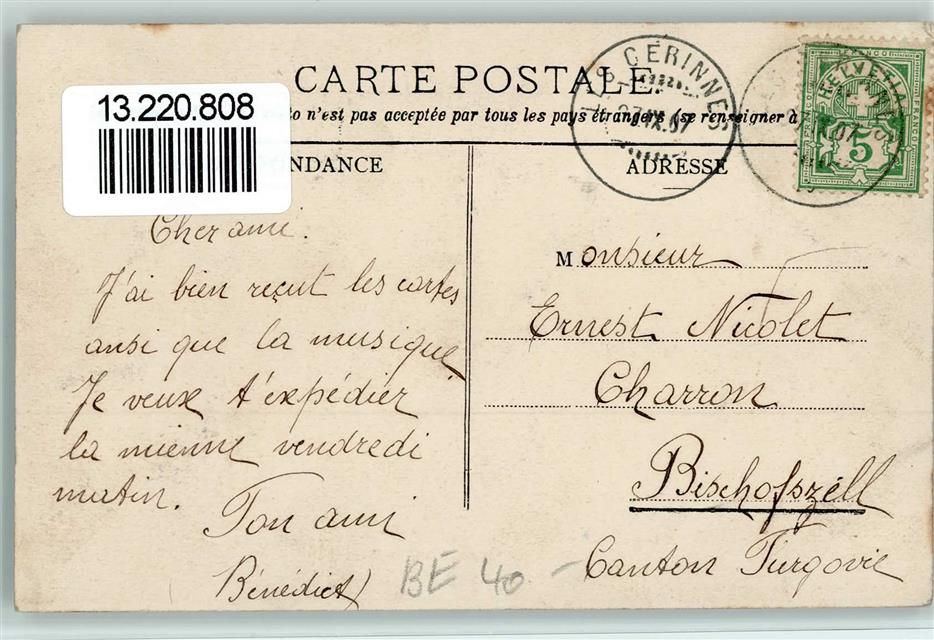 CARTE POSTALE.
13.220.808
n'est pas acceptée par tous les pays étrangers (se renseigner à
NDANCE
ADRESSE
CÉRINNES
IX.07
HELVETIA
FRANCO
5
Cher ami.
J'ai bien reçut les cartes
ansi que la musique
Je veux t'expédier
la mienne vendredi
matin.
Ton ami
Bénédict
Monsieur
Ernest Nicolet
Charron
Bischofszéll
Canton Turgovie
BE 40 -